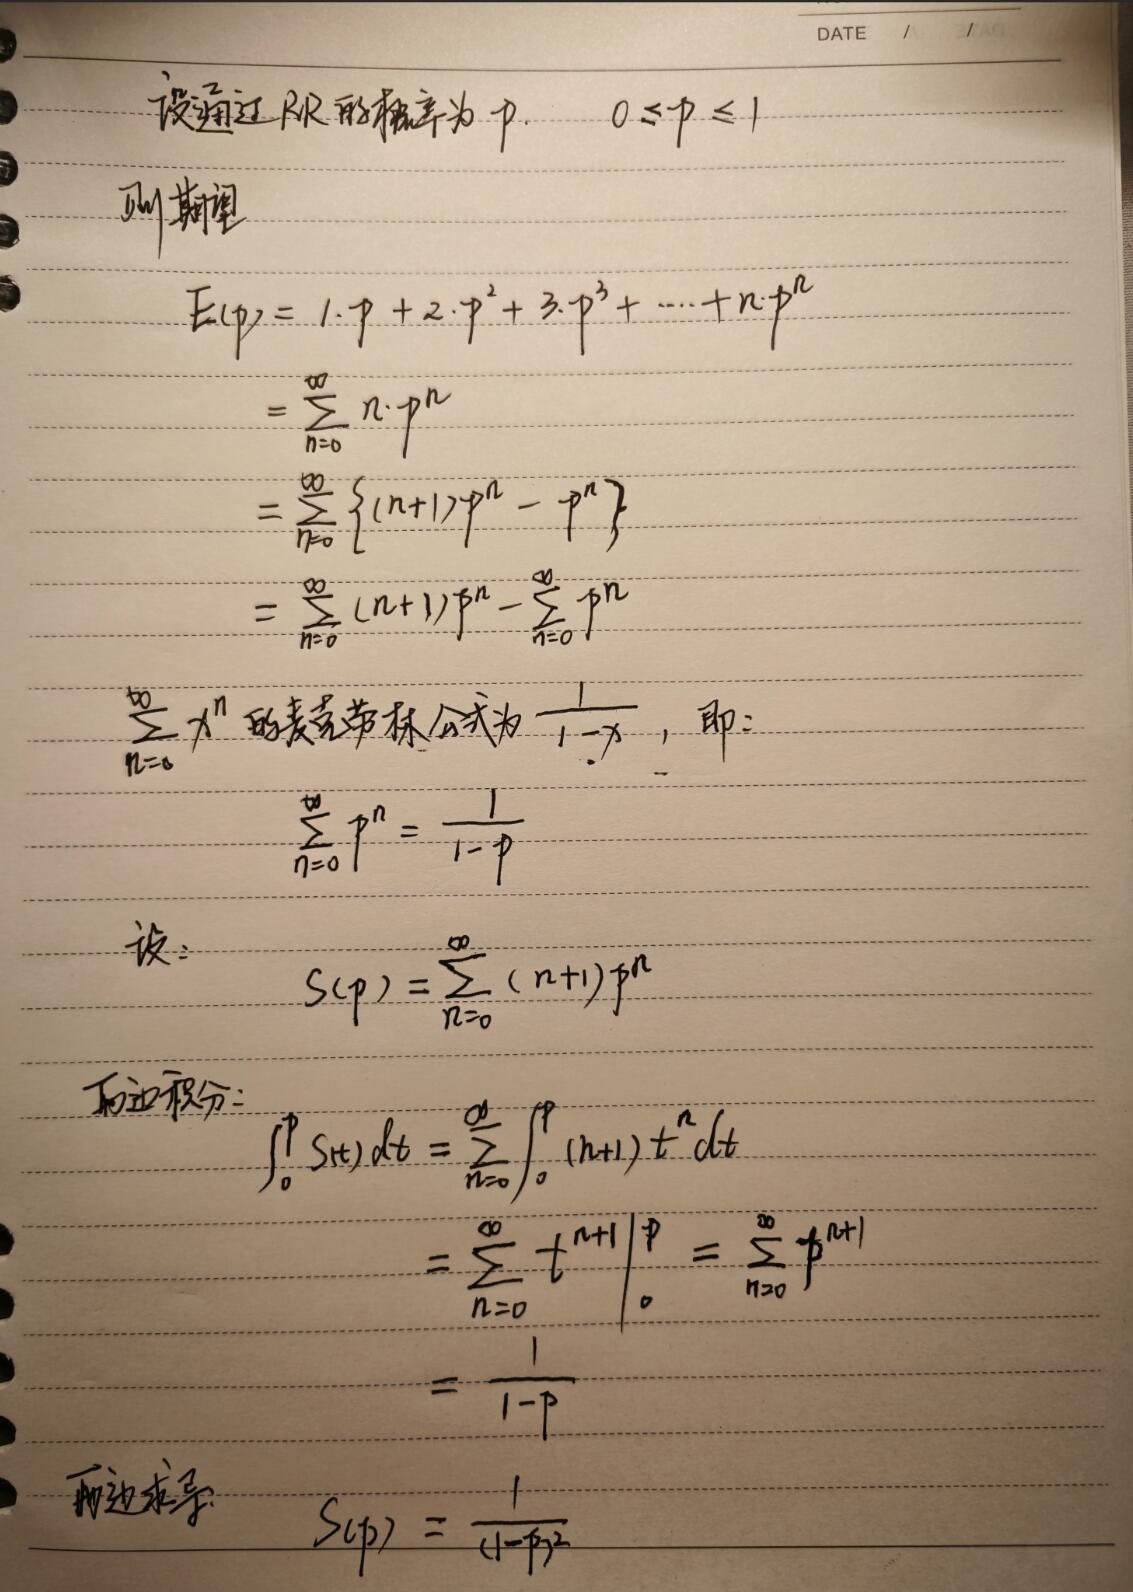 DATE / /
设通过RR的概率为 p. 0 ≤ p ≤ 1
则期望
E(p) = 1·p + 2·p² + 3·p³ + ····· + n·pⁿ
= ∑_{n=0}^{∞} n·pⁿ
= ∑_{n=0}^{∞} {(n+1)pⁿ - pⁿ}
= ∑_{n=0}^{∞} (n+1)pⁿ - ∑_{n=0}^{∞} pⁿ
∑_{n=0}^{∞} xⁿ 的麦克劳林公式为 1/(1-x), 即:
∑_{n=0}^{∞} pⁿ = 1/(1-p)
设:
S(p) = ∑_{n=0}^{∞} (n+1)pⁿ
两边积分:
∫₀ᵖ S(t)dt = ∑_{n=0}^{∞} ∫₀ᵖ (n+1)tⁿdt
= ∑_{n=0}^{∞} tⁿ⁺¹|₀ᵖ = ∑_{n=0}^{∞} pⁿ⁺¹
= 1/(1-p)
两边求导:
S(p) = 1/(1-p)²